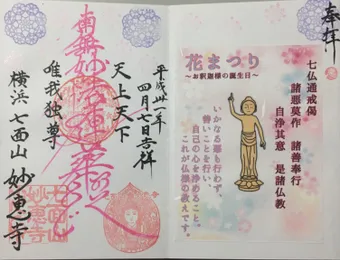 奉拝
七仏通戒偈
諸悪莫作　諸善奉行
自浄其意　是諸仏教
花まつり
～お釈迦様の誕生日～
いかなる悪も行わず、
善いことを行い
自己の心を浄めること。
これが仏様の教えです。
平成卅一年
四月七日吉祥
南無妙法蓮華経
天上天下
唯我独尊
横浜 七面山 妙恵寺
七面山
妙恵寺